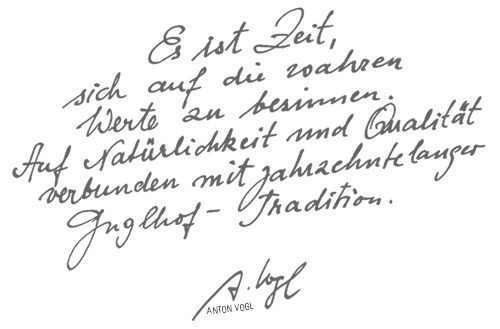 Es ist Zeit,
sich auf die wahren
Werte zu besinnen.
Auf Natürlichkeit und Qualität
verbunden mit jahrzehntelanger
Gnglhof - Tradition.
A. Vogl
ANTON VOGL